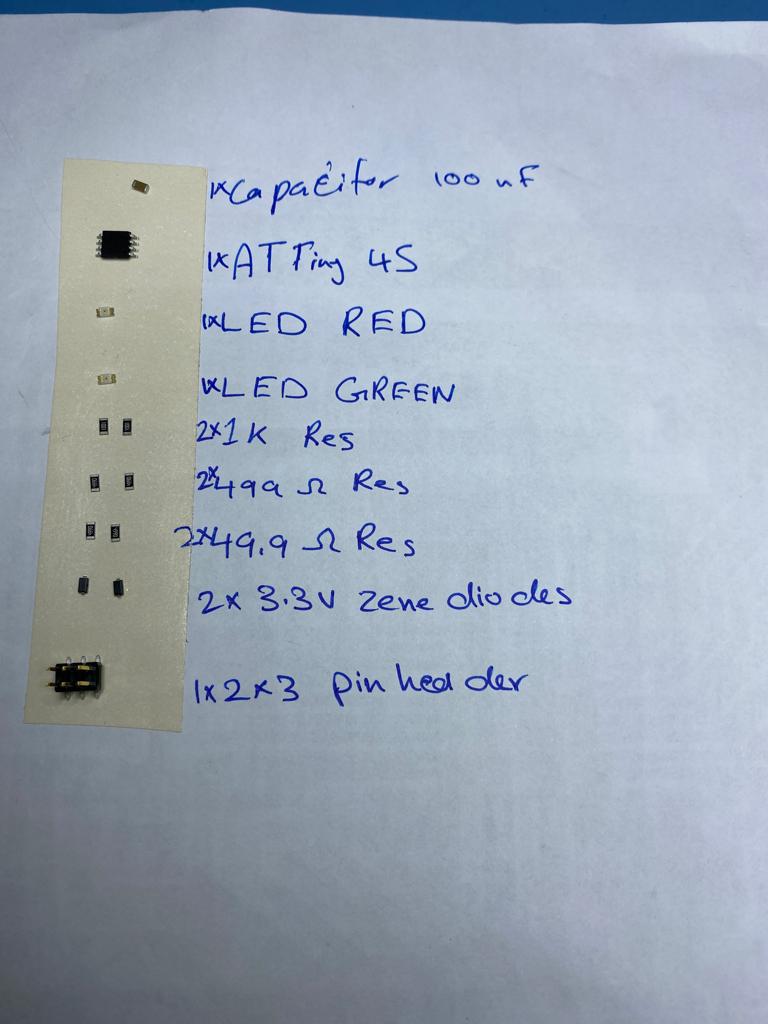 1x Capacitor 100 nF
1x ATTiny 45
1x LED RED
1x LED GREEN
2x 1K Res
2x 499 Ω Res
2x 49.9 Ω Res
2x 3.3V zene diodes
1x 2x3 pin header